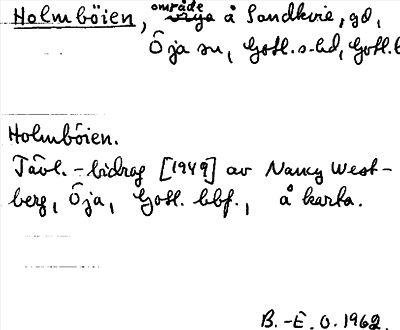 Holmböien, område å Sandkvie, gd,
Öja sn, Gotl. s. hd, Gotl. l
Holmböien.
Tävl.-bidrag [1949] av Nancy West-
berg, Öja, Gotl. hbf., å karta.
B.-E. O. 1962.